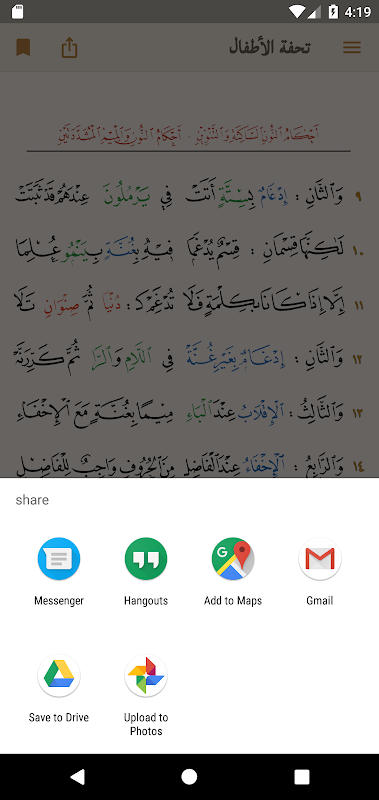 4:19
تحفة الأطفال
أَحْكَامُ النُّونِ السَّاكِنَةِ وَالتَّنْوِينِ - أَحْكَامُ النُّونِ وَالْمِيمِ الْمُشَدَّدَتَيْنِ
٩ وَالثَّانِ : إِدْغَامٌ بِسِتَّةٍ أَتَتْ فِي يَرْمُلُونَ عِنْدَهُمْ قَدْ ثَبَتَتْ
١٠ لَكِنَّهَا قِسْمَانِ : قِسْمٌ يُدْغَمَا فِيهِ بِغُنَّةٍ بِيَنْمُو عُلِمَا
١١ إِلَّا إِذَا كَانَا بِكِلْمَةٍ فَلَا تُدْغِمْ كَ : دُنْيَا ثُمَّ صِنْوَانٍ تَلَا
١٢ وَالثَّانِ : إِدْغَامٌ بِغَيْرِ غُنَّةْ فِي اللَّامِ وَالرَّا ثُمَّ كَرِّرَنَّهْ
١٣ وَالثَّالِثُ : الْإِقْلَابُ عِنْدَ الْبَاءِ مِيمًا بِغُنَّةٍ مَعَ الْإِخْفَاءِ
١٤ وَالرَّابِعُ : الْإِخْفَاءُ عِنْدَ الْفَاضِلِ مِنَ الْحُرُوفِ وَاجِبٌ لِلْفَاضِلِ
share
Messenger
Hangouts
Add to Maps
Gmail
Save to Drive
Upload to
Photos